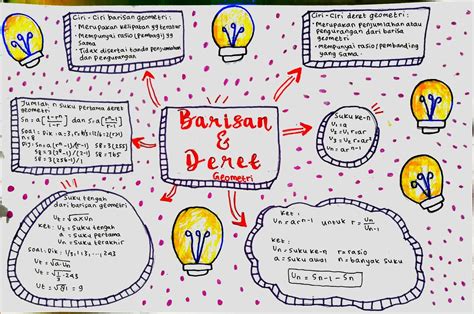 Ciri-Ciri barisan geometri:
• Merupakan kelipakan yg teratur
• Mempunyai rasio (pembagi) yg
sama
• Tidak disertai tanda penjumlahan
dan pengurangan
Ciri-Ciri deret geometri:
• Merupakan penjumlahan atau
pengurangan dari barisa
geometri
• Mempunyai rasio/pembanding
yang sama.
Jumlah n suku pertama deret
geometri
Soal: Dik: a=3, r=6/3=12/6=2(r>1)
n=8
S8=3(255)
S8=765
S8=3(256-1)/1
Barisan
&
Deret
Geometri
Suku ke-n
U1=a
Un=ar n-1
Suku tengah
dari barisan geometri
Ut=√a×Un
ket: Ut=Suku tengah
a=Suku pertama
Un=Suku terakhir
Soal: Dik: 1/3,1,3,...,243
Ut=√a.Un
Ut=√1/3.243
Ut=√81=9
Ket:
Un=arn-1 untuk r=Un/Un-1
ket:
Un=Suku ke-n r=rasio
a=Suku awal n=banyak suku
Un=Sn-1-Sn